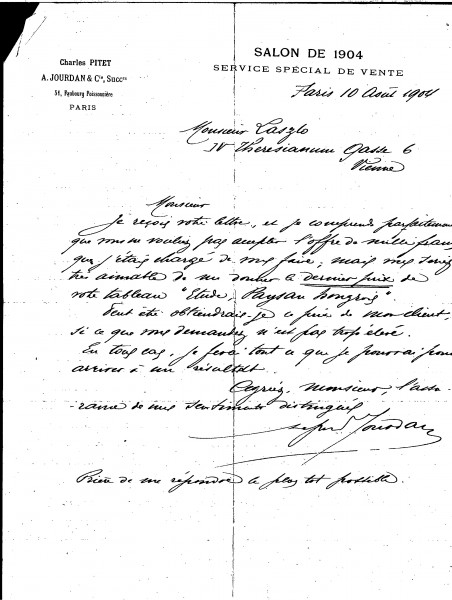 Charles PITET
A. JOURDAN & Cie, Succrs
51, Faubourg Poissonnière
PARIS
SALON DE 1904
SERVICE SPÉCIAL DE VENTE
Paris 10 Août 1904
Monsieur Laszlo
IV Theresianum Gasse 6
Vienne
Monsieur
Je reçois votre lettre, et je comprends parfaitement
que vous ne vouliez pas accepter l'offre de mille francs
que j'étais chargé de vous faire, mais vous seriez
très aimable de me donner le dernier prix de
votre tableau "Etude, Paysan hongrois".
Peut être obtiendrais-je ce prix de mon client,
si ce que vous demandez n'est pas trop élevé.
En tous cas, je ferai tout ce que je pourrai pour
arriver à un résultat.
Agréez, monsieur, l'assu-
rance de mes sentiments distingués
Jourdan
Prière de me répondre le plus tôt possible.